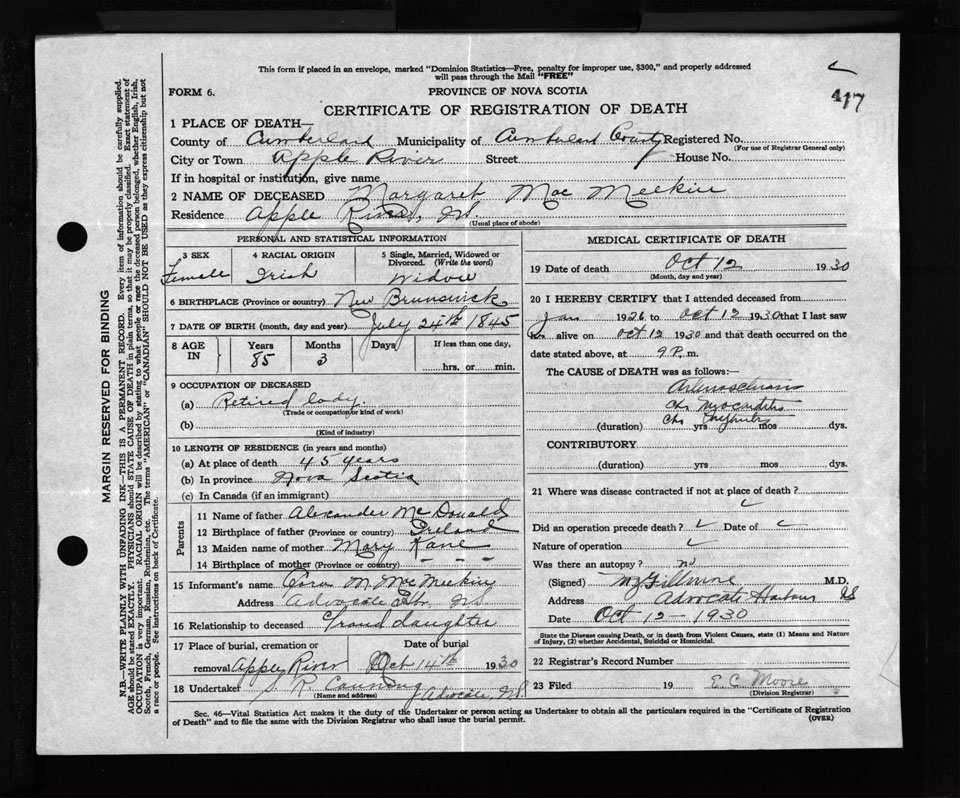 This form if placed in an envelope, marked "Dominion Statistics—Free, penalty for improper use, $300," and properly addressed
will pass through the Mail "FREE"
417
FORM 6.
PROVINCE OF NOVA SCOTIA
CERTIFICATE OF REGISTRATION OF DEATH
1 PLACE OF DEATH—
County of Cumberland Municipality of Cumberland County Registered No.
(For use of Registrar General only)
City or Town Apple River Street House No.
If in hospital or institution, give name
2 NAME OF DECEASED Margaret Mac Meekin
Residence Apple River, N.S.
(Usual place of abode)
PERSONAL AND STATISTICAL INFORMATION
3 SEX 4 RACIAL ORIGIN 5 Single, Married, Widowed or
Divorced. (Write the word)
Female Irish Widow
6 BIRTHPLACE (Province or country) New Brunswick
7 DATE OF BIRTH (month, day and year) July 24th 1845
8 AGE IN Years Months Days If less than one day,
85 3 hrs. or min.
9 OCCUPATION OF DECEASED
(a) Retired lady.
(Trade or occupation or kind of work)
(b)
(Kind of industry)
10 LENGTH OF RESIDENCE (in years and months)
(a) At place of death 45 years
(b) In province Nova Scotia
(c) In Canada (if an immigrant)
Parents
11 Name of father Alexander McDonald
12 Birthplace of father (Province or country) Ireland
13 Maiden name of mother Mary Kane
14 Birthplace of mother (Province or country) - - -
15 Informant's name M. MacMeekin
Address Advocate Hbr. N.S.
16 Relationship to deceased Grand daughter
17 Place of burial, cremation or Date of burial
removal Apple River Oct 14th 1930
18 Undertaker S. R. Advocate N.S.
(Name and address)
MEDICAL CERTIFICATE OF DEATH
19 Date of death Oct 12 1930
(Month, day and year)
20 I HEREBY CERTIFY that I attended deceased from
Jan 1926 to Oct 12 1930 that I last saw
alive on Oct 12 1930 and that death occurred on
date stated above, at 9 P. m.
The CAUSE of DEATH was as follows:—
Ch. Myocarditis
Ch. Nephritis
(duration) yrs mos dys.
CONTRIBUTORY
(duration) yrs mos dys.
21 Where was disease contracted if not at place of death?
Did an operation precede death? Date of
Nature of operation
Was there an autopsy? no
(Signed) M.D.
Address Advocate Harbour NS
Date Oct 12 - 1930
State the Disease causing Death, or in death from Violent Causes, state (1) Means and Nature
of Injury, (2) whether Accidental, Suicidal or Homicidal.
22 Registrar's Record Number
23 Filed 19 E. C. Moore
(Division Registrar)
Sec. 46—Vital Statistics Act makes it the duty of the Undertaker or person acting as Undertaker to obtain all the particulars required in the "Certificate of Registration
of Death" and to file the same with the Division Registrar who shall issue the burial permit.
(OVER)
MARGIN RESERVED FOR BINDING
N.B.—WRITE PLAINLY WITH UNFADING INK—THIS IS A PERMANENT RECORD. Every item of information should be carefully supplied.
AGE should be stated EXACTLY. PHYSICIANS should STATE CAUSE OF DEATH in plain terms, so that it may be properly classified. Exact statement of
OCCUPATION is very important. RACIAL ORIGIN will be described by stating to what people or race the deceased person belonged, whether English, Irish,
Scotch, French, German, Russian, Ruthenian, etc. The terms "AMERICAN" or "CANADIAN" SHOULD NOT BE USED as they express citizenship but not
a race or people. See instructions on back of Certificate.